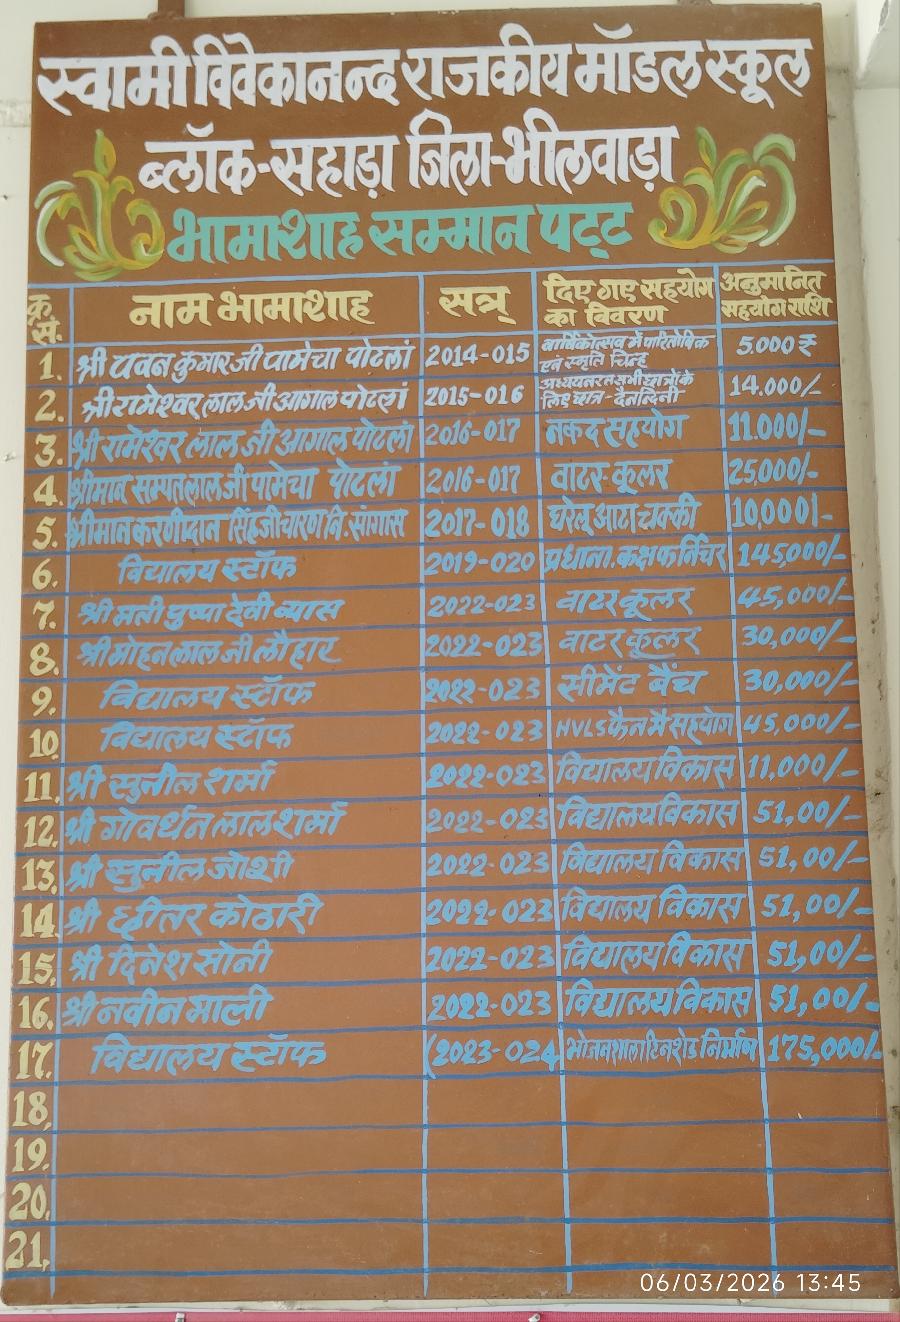 स्वामी विवेकानन्द राजकीय मॉडल स्कूल
ब्लॉक-सहाड़ा जिला-भीलवाड़ा
भामाशाह सम्मान पट्ट
क्र.सं. नाम भामाशाह सत्र् दिए गए सहयोग का विवरण अनुमानित सहयोग राशि
1. श्री पवन कुमार जी पामेचा पोटलां 2014-015 वार्षिकोत्सव में पारितोषिक एवं स्मृति चिन्ह 5.000₹
2. श्री रामेश्वर लाल जी आगाल पोटलां 2015-016 अध्ययनरत सभी छात्रों के लिए छात्र-दैनन्दिनी 14.000/-
3. श्री रामेश्वर लाल जी आगाल पोटलां 2016-017 नकद सहयोग 11.000/-
4. श्रीमान सम्पतलाल जी पामेचा पोटलां 2016-017 वाटर कूलर 25,000/-
5. श्रीमान करणीदान सिंह जी चारण नि. सांगास 2017-018 घरेलू आटा चक्की 10,000/-
6. विद्यालय स्टॉफ 2019-020 प्रधाना. कक्ष फर्निचर 145,000/-
7. श्री मती पुष्पा देवी व्यास 2022-023 वाटर कूलर 45,000/-
8. श्री मोहन लाल जी लौहार 2022-023 वाटर कूलर 30,000/-
9. विद्यालय स्टॉफ 2022-023 सीमेंट बैंच 30,000/-
10. विद्यालय स्टॉफ 2022-023 HVLS फैन में सहयोग 45,000/-
11. श्री सुनील शर्मा 2022-023 विद्यालय विकास 11,000/-
12. श्री गोवर्धन लाल शर्मा 2022-023 विद्यालय विकास 51,00/-
13. श्री सुनील जोशी 2022-023 विद्यालय विकास 51,00/-
14. श्री छीतर कोठारी 2022-023 विद्यालय विकास 51,00/-
15. श्री दिनेश सोनी 2022-023 विद्यालय विकास 51,00/-
16. श्री नवीन माली 2022-023 विद्यालय विकास 51,00/-
17. विद्यालय स्टॉफ (2023-024 भोजनशाला टिनशेड निर्माण 175,000/-
18.
19.
20.
21.
06/03/2026 13:45